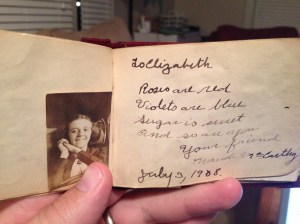 To Elizabeth
Roses are red
Violets are blue
Sugar is sweet
And so are you
Your friend
McCarthy
July 3, 1908.